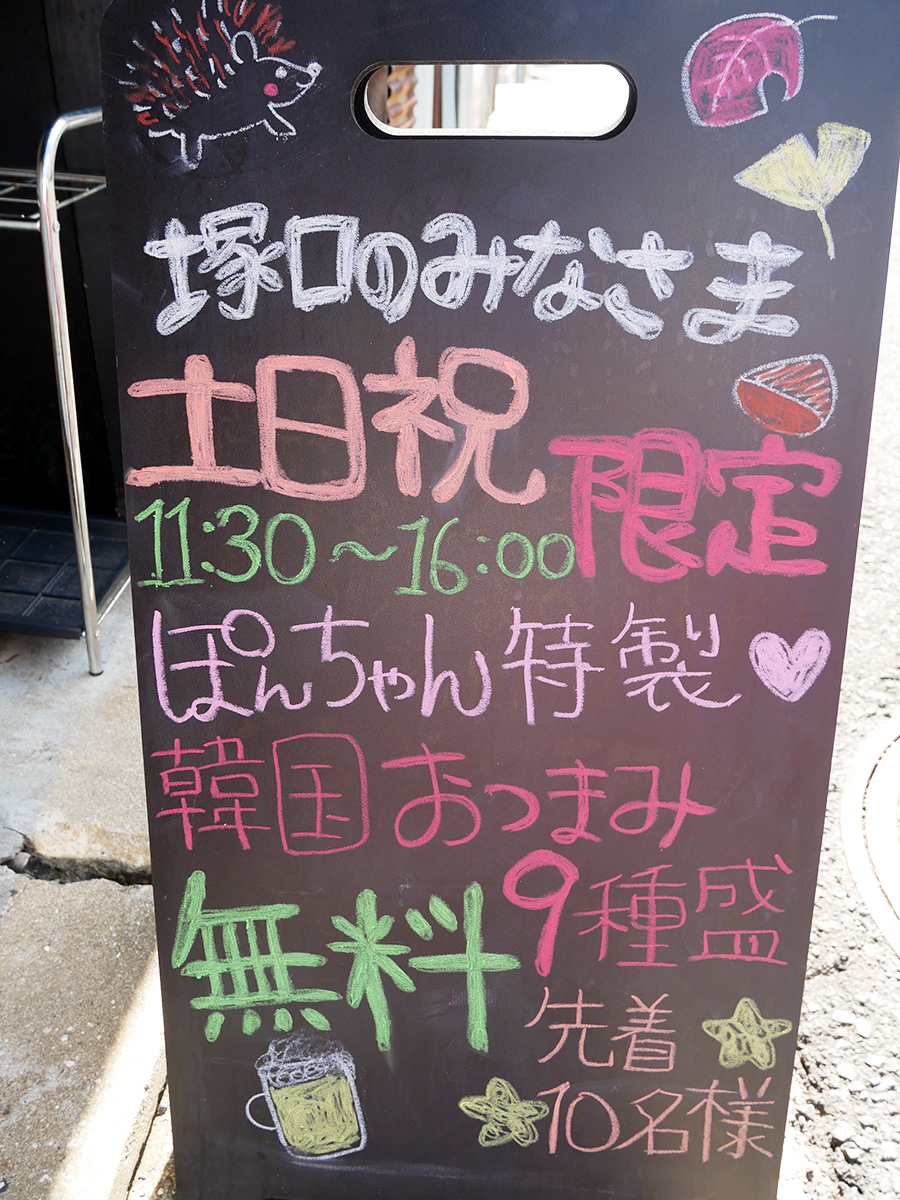 塚口のみなさま
土日祝
限定
11:30～16:00
ぽんちゃん特製
韓国おつまみ
9種盛
無料
先着
10名様